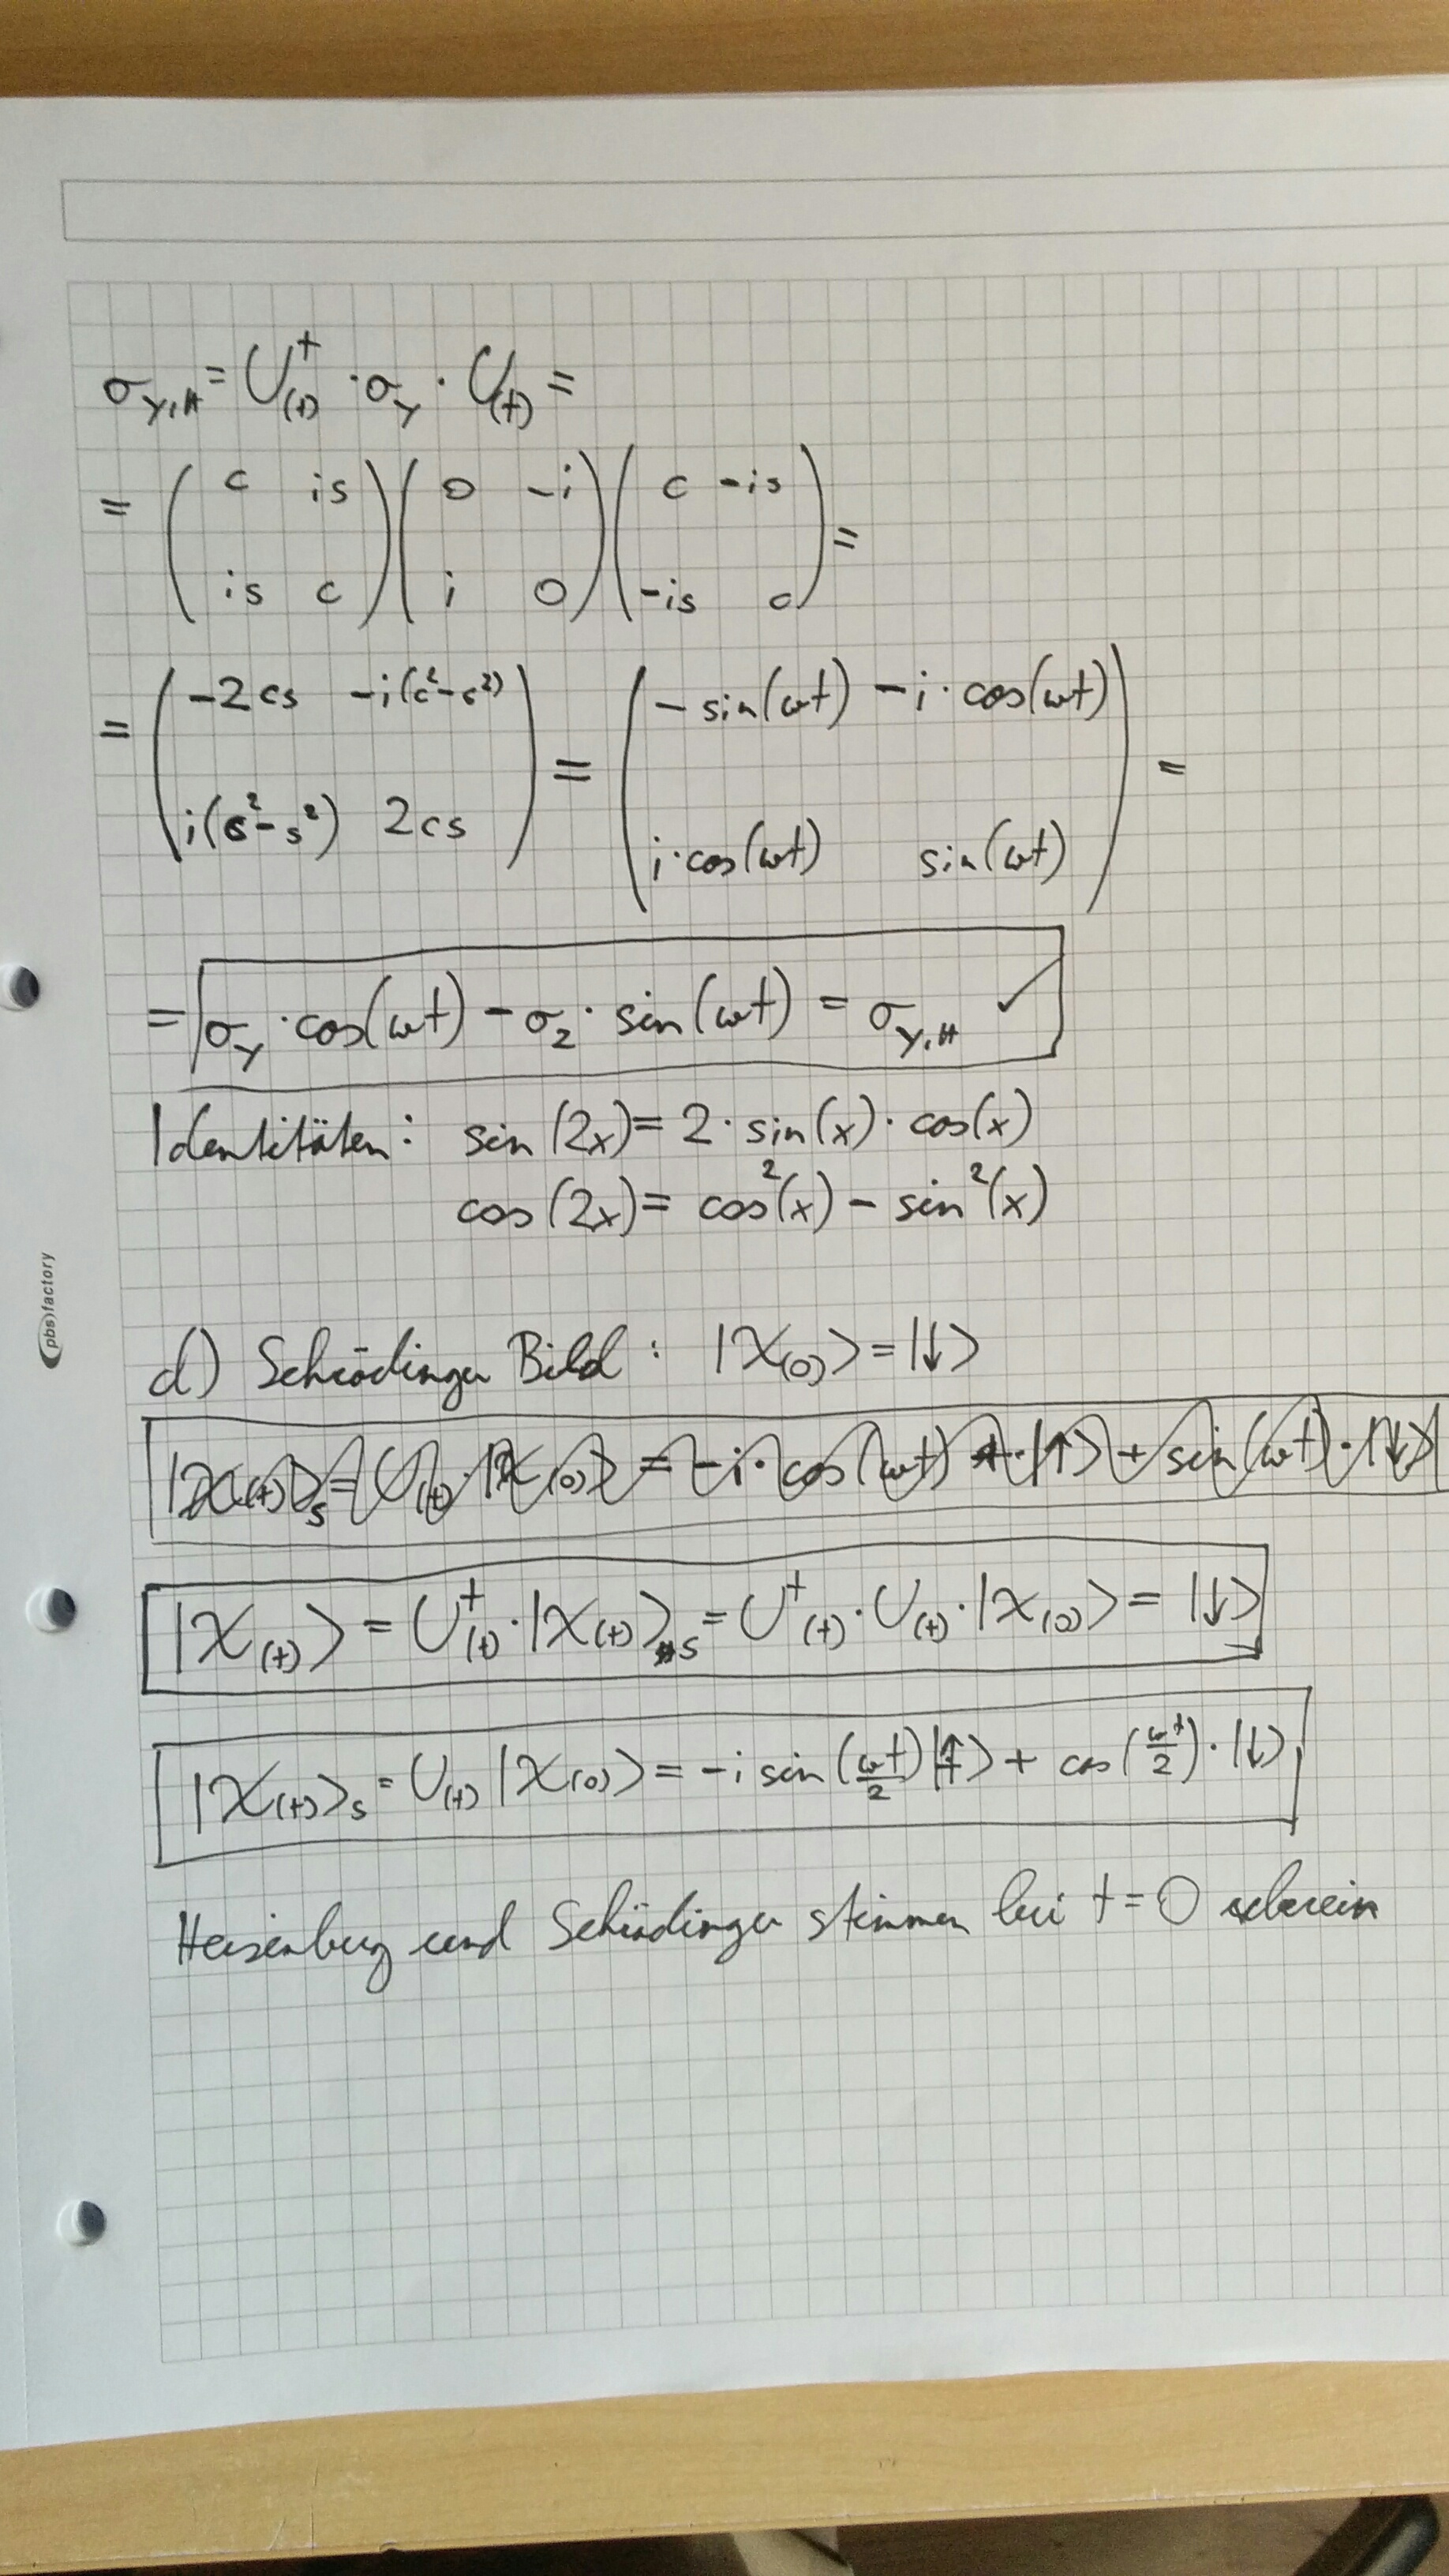 σ_{y,H} = U^†_{(t)} · σ_y · U_{(t)} =
= ( c is ; is c ) ( 0 -i ; i 0 ) ( c -is ; -is c ) =
= ( -2cs -i(c²-s²) ; i(c²-s²) 2cs ) = ( -sin(ωt) -i·cos(ωt) ; i·cos(ωt) sin(ωt) ) =
= σ_y · cos(ωt) - σ_z · sin(ωt) = σ_{y,H} ✓
Identitäten: sin(2x) = 2·sin(x)·cos(x)
cos(2x) = cos²(x) - sin²(x)
d) Schrödinger Bild: |χ_{(0)}⟩ = |↓⟩
|χ_{(t)}⟩_s = U_{(t)} · |χ_{(0)}⟩ = -i·cos(ωt) · |↑⟩ + sin(ωt)·|↓⟩
|χ_{(t)}⟩ = U^†_{(t)} · |χ_{(t)}⟩_s = U^†_{(t)} · U_{(t)} · |χ_{(0)}⟩ = |↓⟩
|χ_{(t)}⟩_s = U_{(t)} |χ_{(0)}⟩ = -i sin(ωt/2) |↑⟩ + cos(ωt/2) · |↓⟩
Heisenberg und Schrödinger stimmen bei t=0 überein
pbs factory